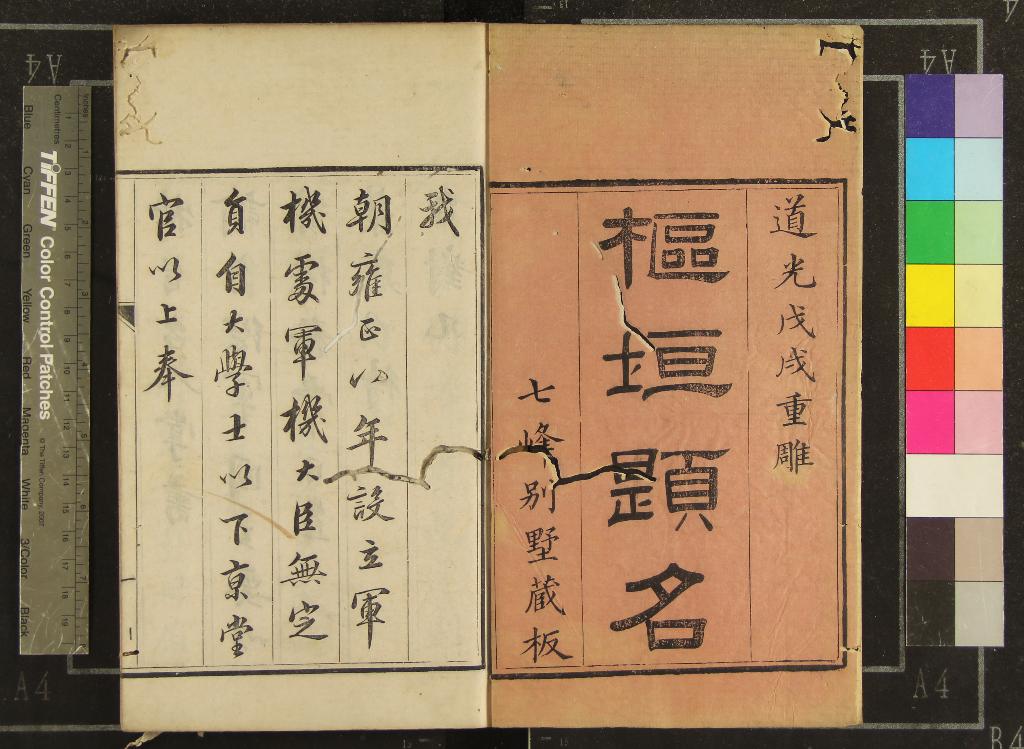 道光戊戌重雕
樞垣題名
七峰別墅蔵板
我
朝雍正八年設立軍
機處軍機大臣無定
員自大學士以下京堂
官以上奉
Inches
Centimetres
TIFFEN Color Control Patches
© The Tiffen Company, 2007
Blue Cyan Green Yellow Red Magenta White 3/Color Black
A4
A4
A4
A4
A4
B4